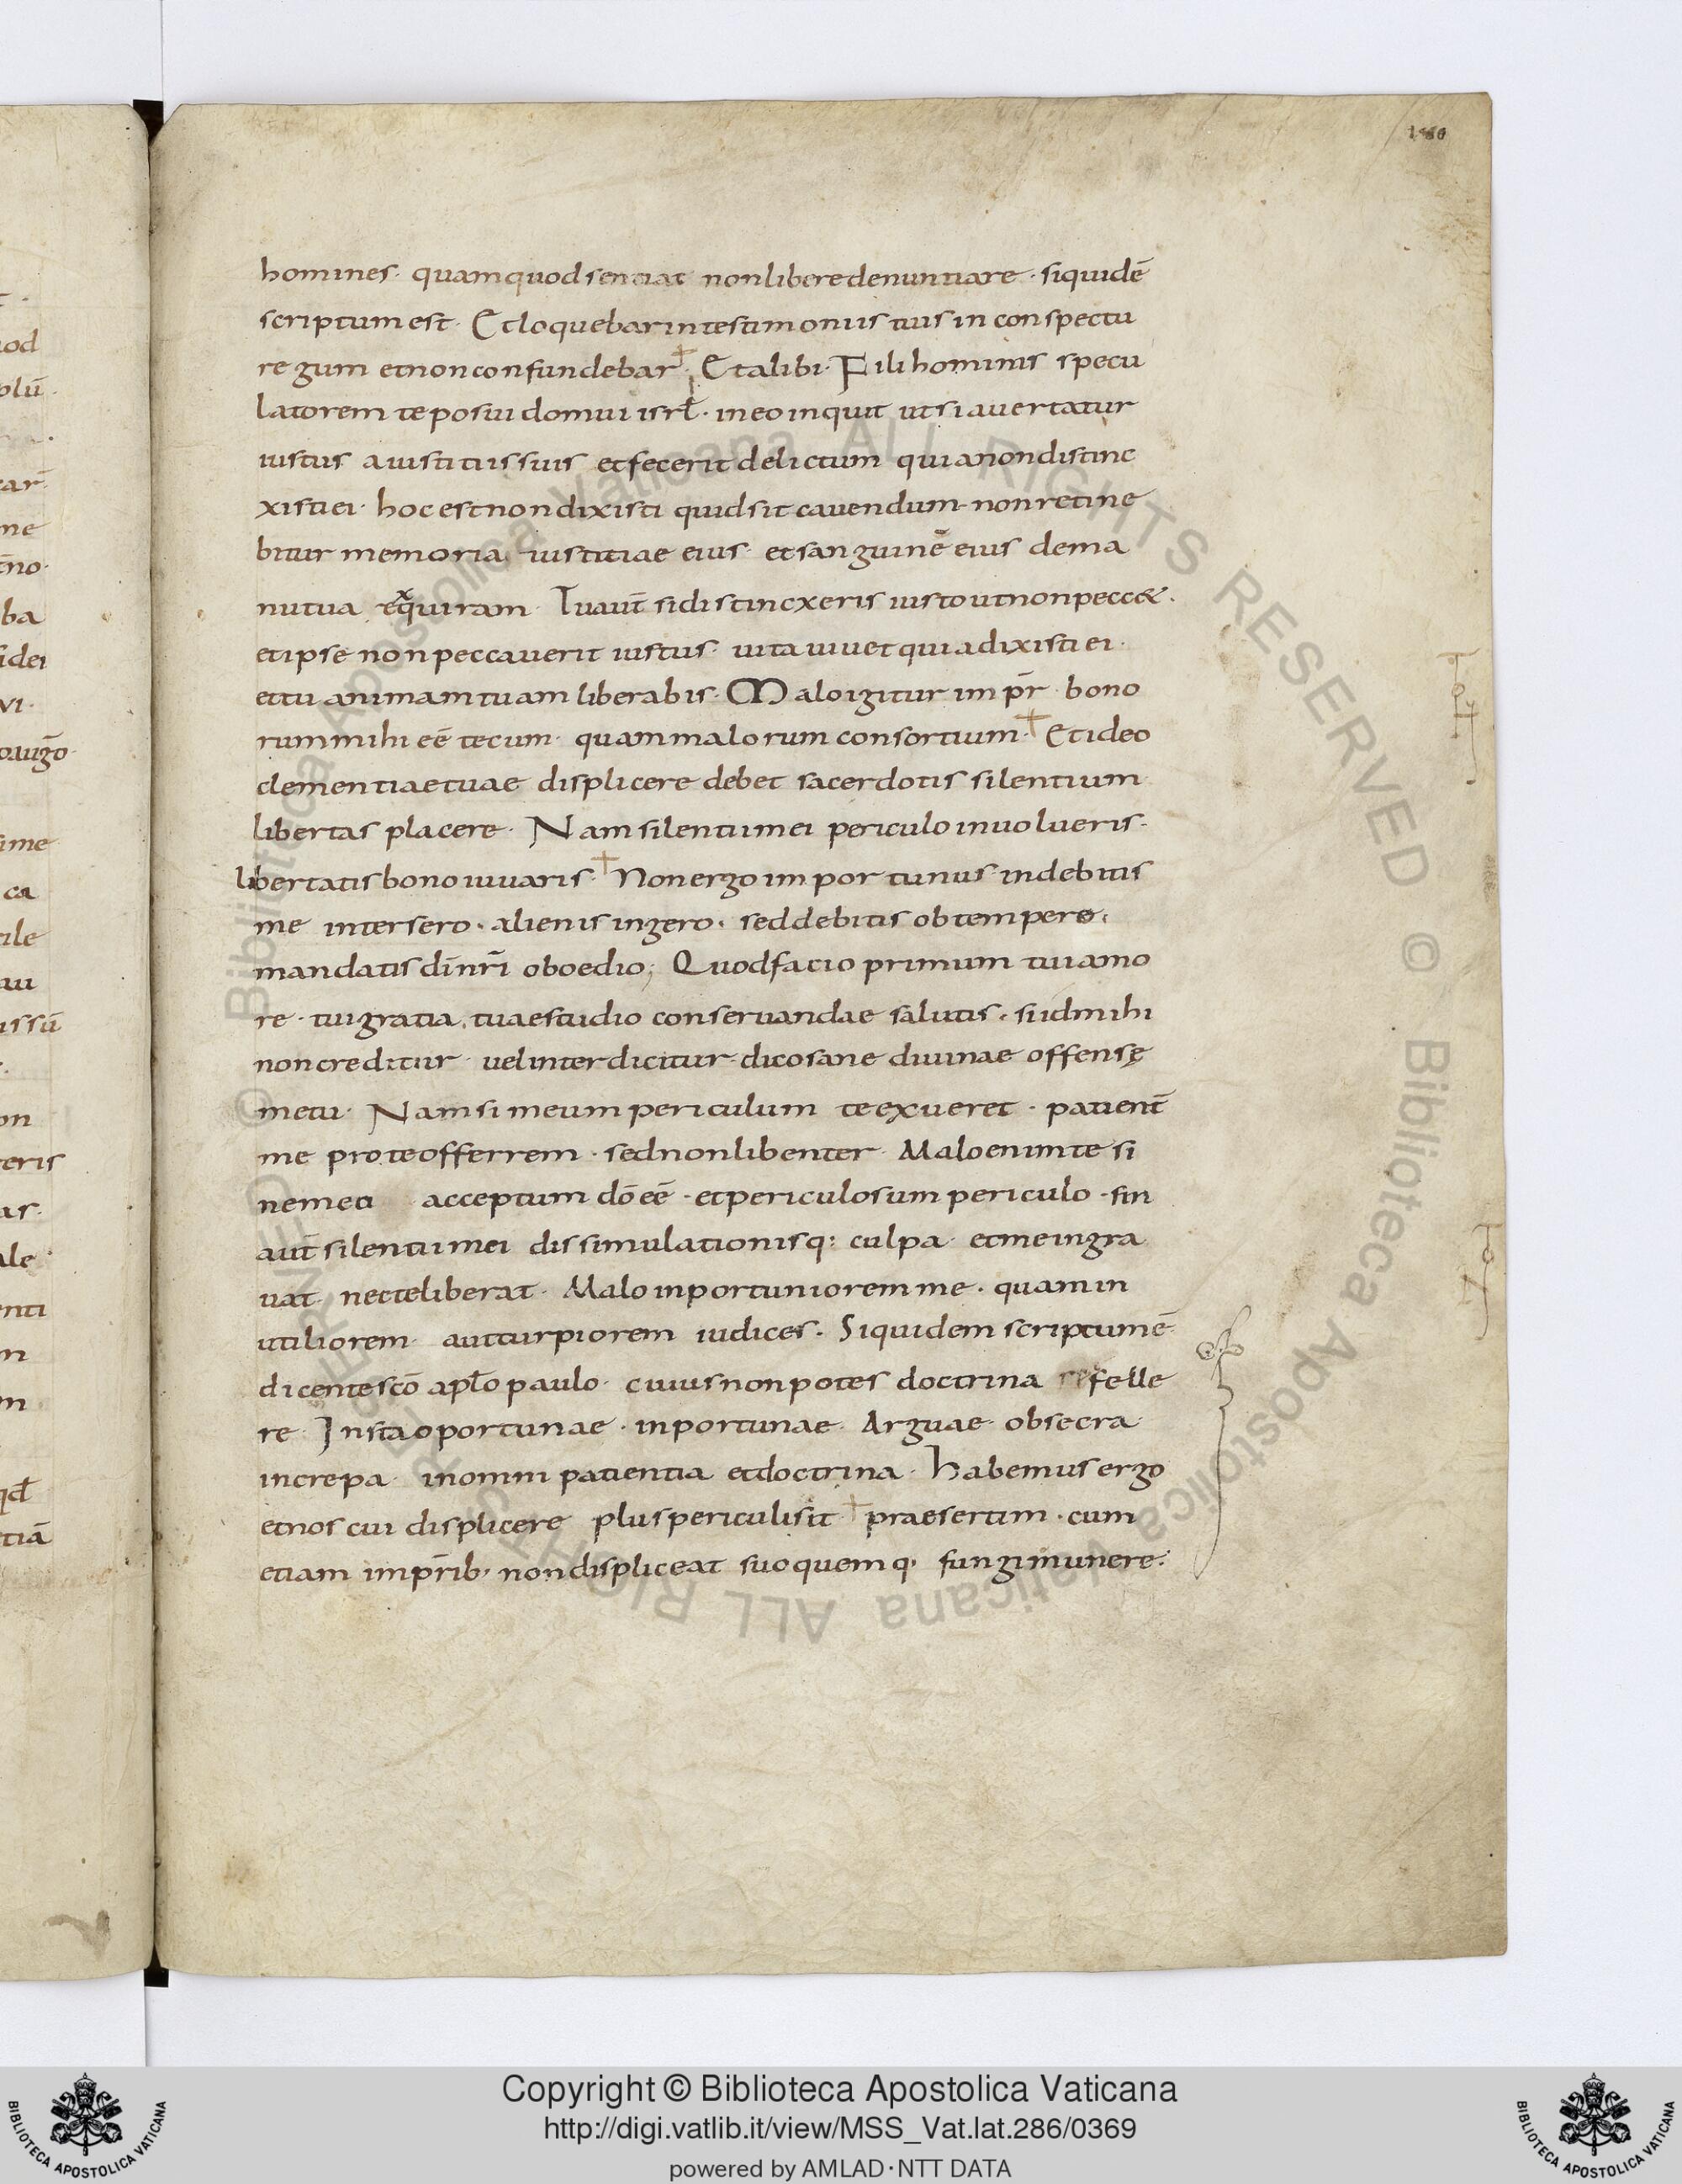 homines· quam quod sentiat non libere denuntiare· siquidē
scriptum est· Et loquebar in testimoniis tuis in conspectu
regum et non confundebar· Et alibi· Fili hominis specu
latorem te posui domui isrl̄· in eo inquit ut si avertatur
iustus a iustitiis suis et fecerit delictum quia non distinc
xisti ei· hoc est non dixisti quid sit cavendum· non retine
bitur memoria iustitiae eius· et sanguinē eius de ma
nu tua exquiram· Tu aut̄ si distincxeris iusto ut non pecc&·
et ipse non peccaverit iustus· vita vivet quia dixisti ei·
et tu animam tuam liberabis· Malo igitur imp̄r bono
rum mihi eē tecum· quam malorum consortium· Et ideo
clementiae tuae displicere debet sacerdotis silentium
libertas placere· Nam silentii mei periculo involveris·
libertatis bono iuvaris· Non ergo importunus indebitis
me intersero· alienis ingero· sed debitis obtempero·
mandatis dī nr̄i oboedio; Quod facio primum tui amo
re· tui gratia, tuae studio conservandae salutis· si id mihi
non creditur vel interdicitur dico sane divinae offensę
metu· Nam si meum periculum te exueret· patient̄
me pro te offerrem· sed non libenter· Malo enim te si
ne mea acceptum dō eē· et periculosum periculo· sin
aut̄ silentii mei dissimulationisq: culpa· et me ingra
vat nec te liberat· Malo inportuniorem me· quam in
utiliorem aut turpiorem iudices· Siquidem scriptum ē
dicente scō apl̄o paulo· cuius non potes doctrina refelle
re· Insta oportunae· inportunae· Arguae· obsecra
increpa· in omni patientia et doctrina· habemus ergo
et nos cui displicere plus periculi sit praesertim· cum
etiam imp̄rib; non displiceat suo quemq; fungi munere·
Copyright © Biblioteca Apostolica Vaticana
http://digi.vatlib.it/view/MSS_Vat.lat.286/0369
powered by AMLAD·NTT DATA